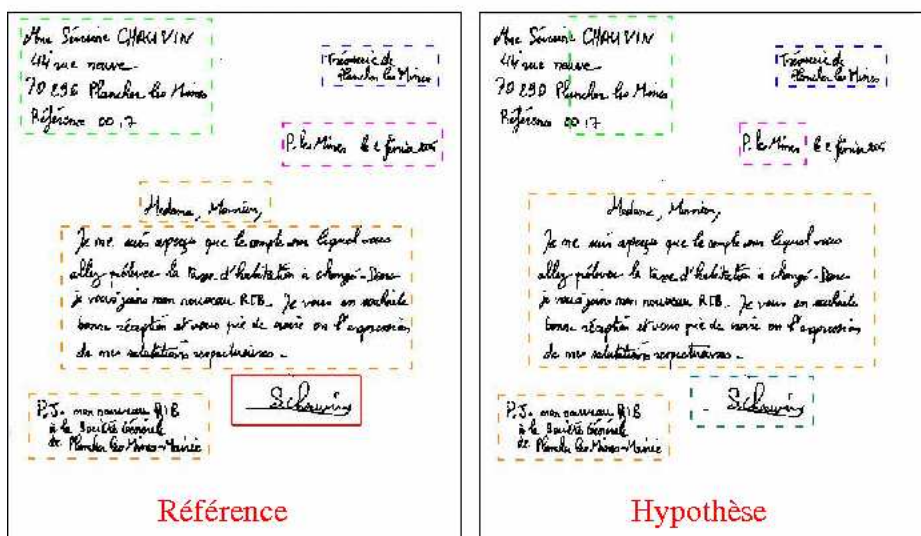 Mme Séverine CHAUVIN
44 rue neuve
70290 Plancher les Mines
Référence 00,7
Trésorerie de
Plancher les Mines
P. les Mines le 2 février
Madame, Monsieur,
Je me suis aperçu que le compte sur lequel vous
allez prélever la taxe d'habitation a changé - Donc
je vous joins mon nouveau RIB. Je vous en souhaite
bonne réception et vous prie de croire en l'expression
de mes salutations respectueuses -
S. Chauvin
P.J. mon nouveau RIB
à la Société Générale
de Plancher les Mines-Mairie
Référence
Mme Séverine CHAUVIN
44 rue neuve
70290 Plancher les Mines
Référence 00,7
Trésorerie de
Plancher les Mines
P. les Mines le 2 février
Madame, Monsieur,
Je me suis aperçu que le compte sur lequel vous
allez prélever la taxe d'habitation a changé - Donc
je vous joins mon nouveau RIB. Je vous en souhaite
bonne réception et vous prie de croire en l'expression
de mes salutations respectueuses -
S. Chauvin
P.J. mon nouveau RIB
à la Société Générale
de Plancher les Mines-Mairie
Hypothèse